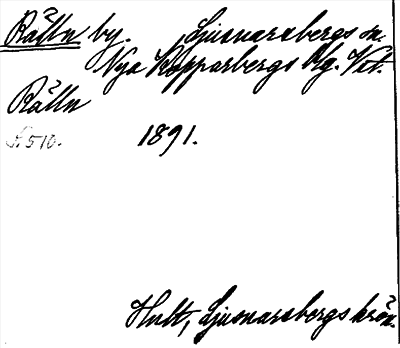 Rålln by. Ljusnarsbergs sn.
Nya Kopparbergs blg. Vet.
Rålln
s. 510. 1891.
Hult, Ljusnarsbergs krön.